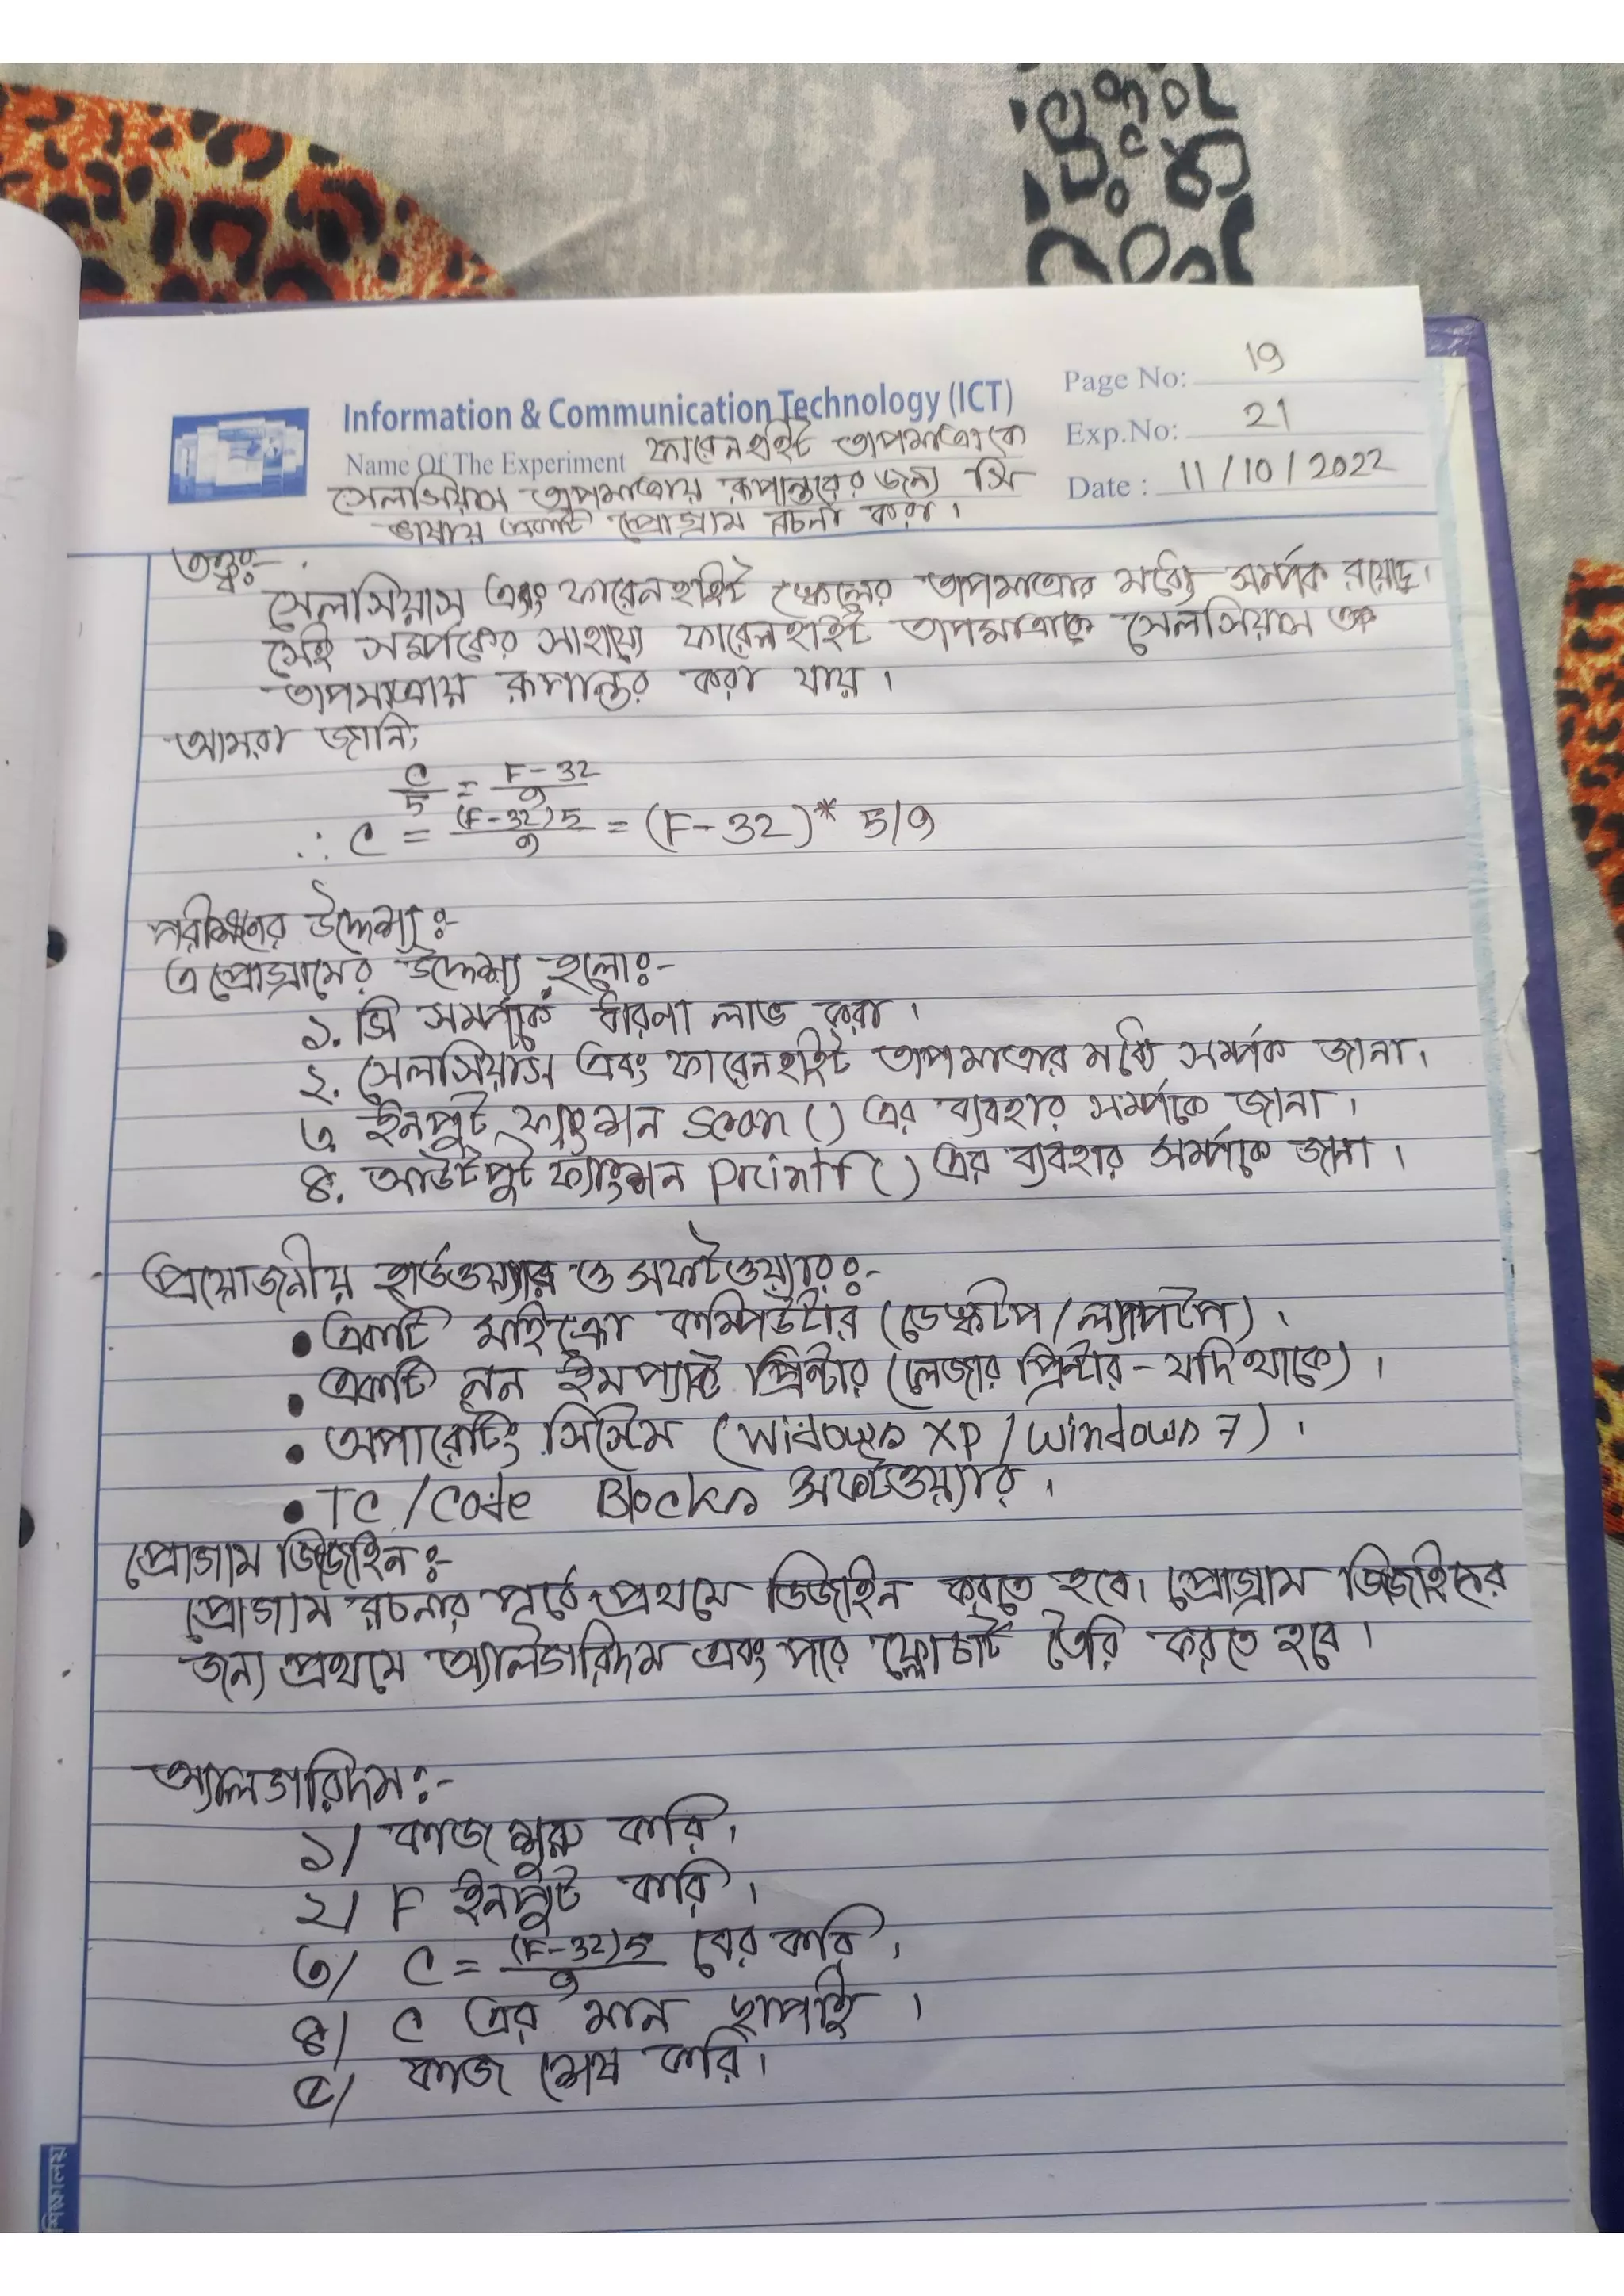 Page No: 19
Information & Communication Technology (ICT)
Exp.No: 21
Name Of The Experiment ফারেনহাইট তাপমাত্রাকে
Date : 11/10/2022
সেলসিয়াস তাপমাত্রায় রূপান্তরের জন্য সি
ভাষায় একটি প্রোগ্রাম রচনা করা।
তত্ত্বঃ-
সেলসিয়াস এবং ফারেনহাইট স্কেলের তাপমাত্রার মধ্যে সম্পর্ক রয়েছে।
সেই সম্পর্কের সাহায্যে ফারেনহাইট তাপমাত্রাকে সেলসিয়াস
তাপমাত্রায় রূপান্তর করা যায়।
আমরা জানি,
C/5 = F-32/9
∴ C = (F-32)5/9 = (F-32)* 5/9
পরীক্ষণের উদ্দেশ্যঃ-
এ প্রোগ্রামের উদ্দেশ্য হলোঃ-
১. সি সম্পর্কে ধারণা লাভ করা।
২. সেলসিয়াস এবং ফারেনহাইট তাপমাত্রার মধ্যে সম্পর্ক জানা।
৩ ইনপুট ফ্যাংশন Scan() এর ব্যবহার সম্পর্কে জানা।
৪. আউটপুট ফ্যাংশন printf() এর ব্যবহার সম্পর্কে জানা।
প্রয়োজনীয় হার্ডওয়্যার ও সফটওয়্যারঃ-
• একটি মাইক্রো কম্পিউটার (ডেস্কটপ/ল্যাপটপ)।
• একটি নন ইমপ্যাক্ট প্রিন্টার (লেজার প্রিন্টার-যদি থাকে)।
• অপারেটিং সিস্টেম (Widows XP/Windows 7)।
• TC/Code Blocks সফটওয়্যার।
প্রোগাম ডিজাইনঃ-
প্রোগাম রচনার পূর্বে প্রথমে ডিজাইন করতে হবে। প্রোগ্রাম ডিজাইনের
জন্য প্রথমে অ্যালগরিদম এবং পরে ফ্লোচার্ট তৈরি করতে হবে।
অ্যালগারিদমঃ-
১/ কাজ শুরু করি।
২/ F ইনপুট করি।
৩/ C = (F-32)5/9 বের করি।
৪/ C এর মান ছাপাই।
৫/ কাজ শেষ করি।
শিক্ষালয়